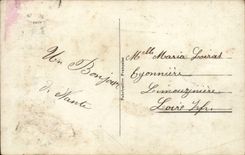 Un Bonjour
de Nante
Mlle Maria Loirat
Lyonnière
Limouzinière
Loire Infre